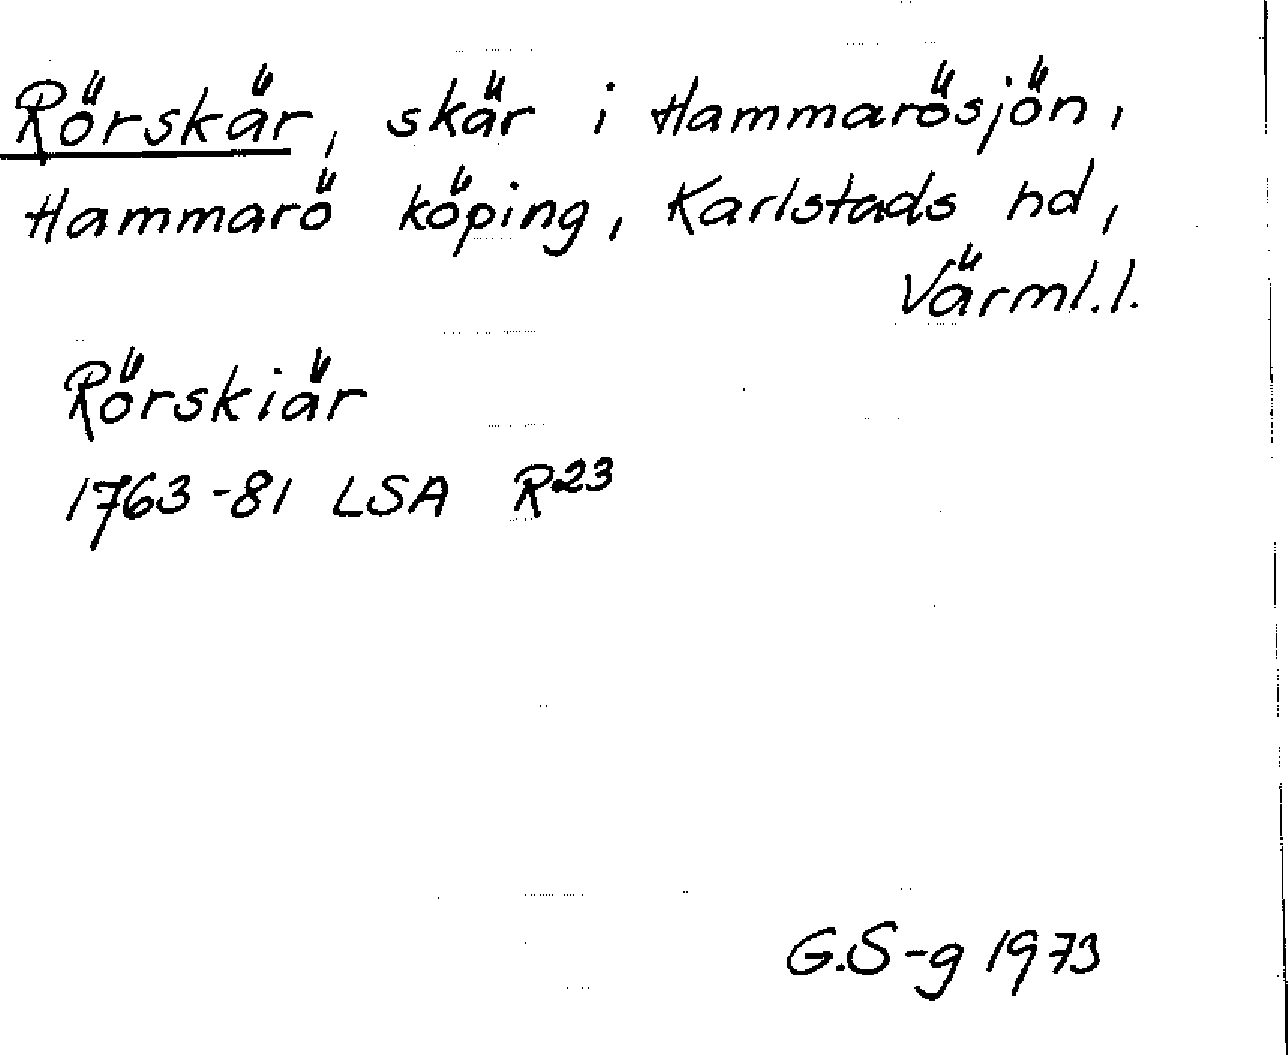 Rörskär, skär i Hammarösjön,
Hammarö köping, Karlstads hd,
Värml.l.
Rörskiär
1763-81 LSA R23
G.S-g 1973